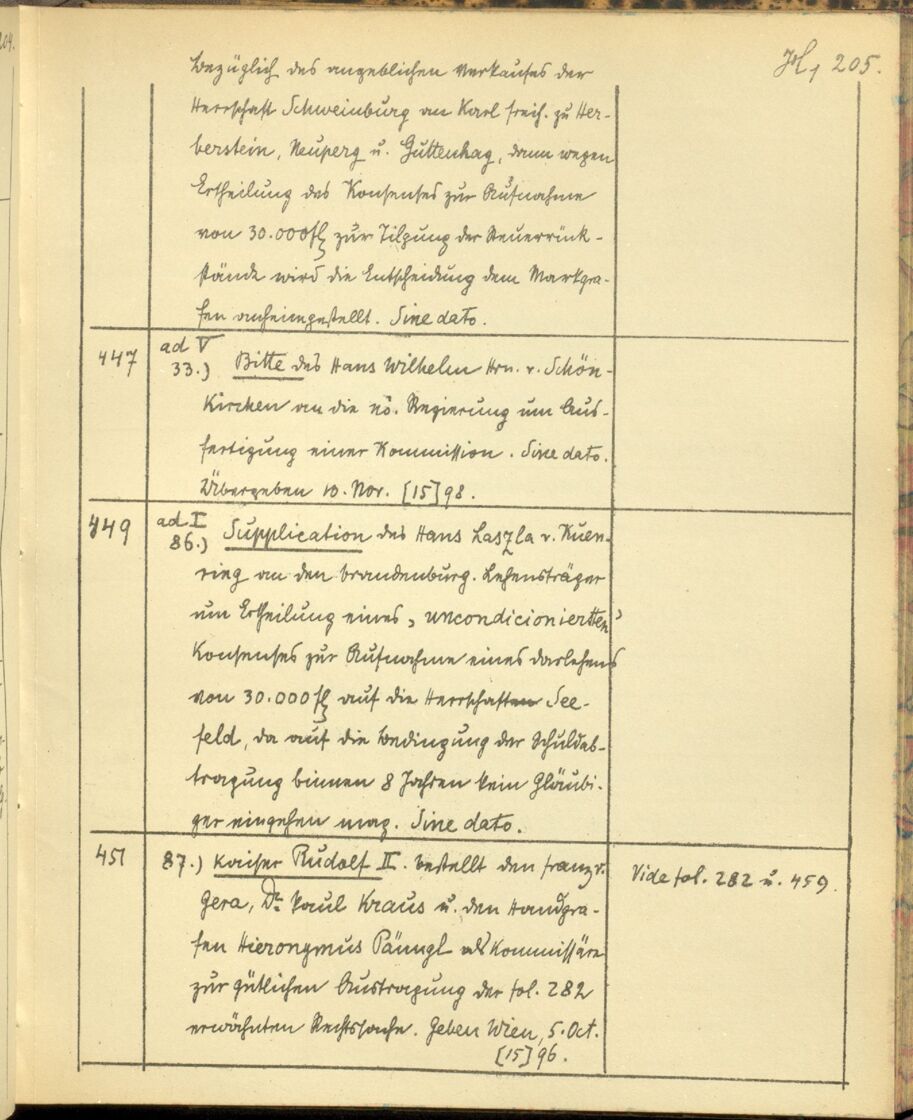 H, 205.
bezüglich des angeblichen Verkaufes der
Herrschaft Schweinburg an Karl Freih. zu Her-
berstein, Neuperg u. Guttenhag, dann wegen
Ertheilung des Konsenses zur Aufnahme
von 30.000 fl zur Tilgung der Steuerrück-
stände wird die Entscheidung dem Markgra-
fen anheimgestellt. Sine dato.
447 ad V 33.) Bitte des Hans Wilhelm Hrn. v. Schön-
kirchen an die nö. Regierung um Aus-
fertigung einer Kommission. Sine dato.
Übergeben 10. Nov. [15]98.
449 ad I 86.) Supplication des Hans Laszla v. Kuen-
ring an den brandenburg. Lehensträger
um Ertheilung eines „uncondicionierten"
Konsenses zur Aufnahme eines Darlehens
von 30.000 fl auf die Herrschaften See-
feld, da auf die Bedingung der Schuldab-
tragung binnen 8 Jahren kein Gläubi-
ger eingehen mag. Sine dato.
451 87.) Kaiser Rudolf II. bestellt den Franz v.
Gera, Dr. Paul Kraus u. den Handgra-
fen Hieronymus Pänngl als Kommissäre
zur gütlichen Austragung der fol. 282
erwähnten Rechtssache. Geben Wien, 5. Oct.
[15]96.
Vide fol. 282 u. 459.